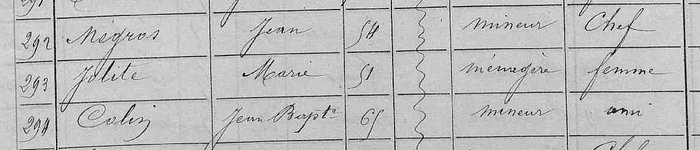 292 Négros Jean 54 mineur Chef
293 Jolite Marie 51 ménagère femme
294 Colin Jean Bapte 65 mineur ami